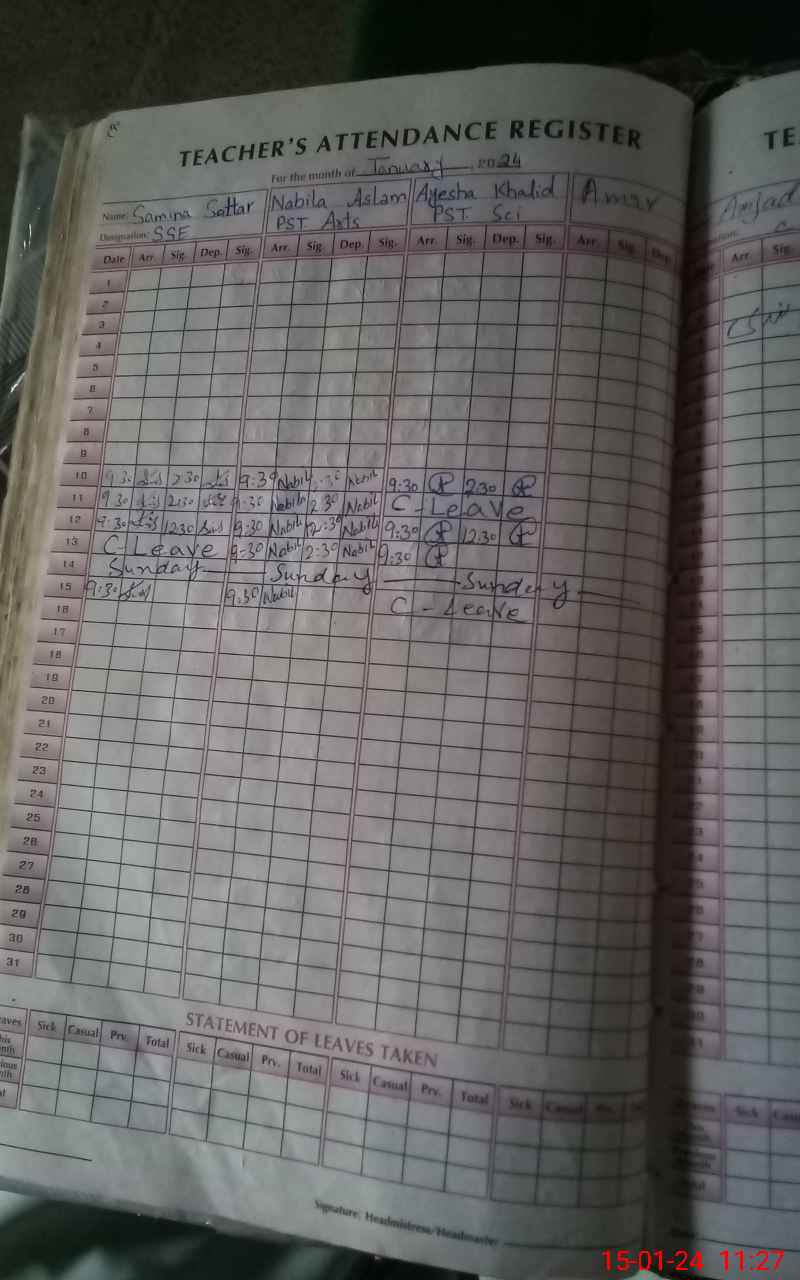 TEACHER'S ATTENDANCE REGISTER
For the month of January, 2024
Name: Samina Sattar Nabila Aslam Ayesha Khalid
Designation: SSE PST Arts PST Sci
Date Arr. Sig. Dep. Sig. Arr. Sig. Dep. Sig. Arr. Sig. Dep. Sig. Arr. Sig. Dep.
1
2
3
4
5
6
7
8
9
10 9:30 2:30 9:30 Nabila 9:30 2:30
11 9:30 2:30 9:30 Nabila 2:30 Nabil C-Leave
12 9:30 12:30 9:30 Nabil 12:30 Nabil 9:30 12:30
13 C-Leave 9:30 Nabil 2:30 Nabil 9:30
14 Sunday Sunday Sunday
15 9:30 9:30 Nabil C-Leave
16
17
18
19
20
21
22
23
24
25
26
27
28
29
30
31
STATEMENT OF LEAVES TAKEN
Sick Casual Prv. Total Sick Casual Prv. Total Sick Casual Prv. Total Sick Casual
Signature: Headmistress/Headmaster
TE
Amjad
Arr. Sig.
Sick
15-01-24 11:27